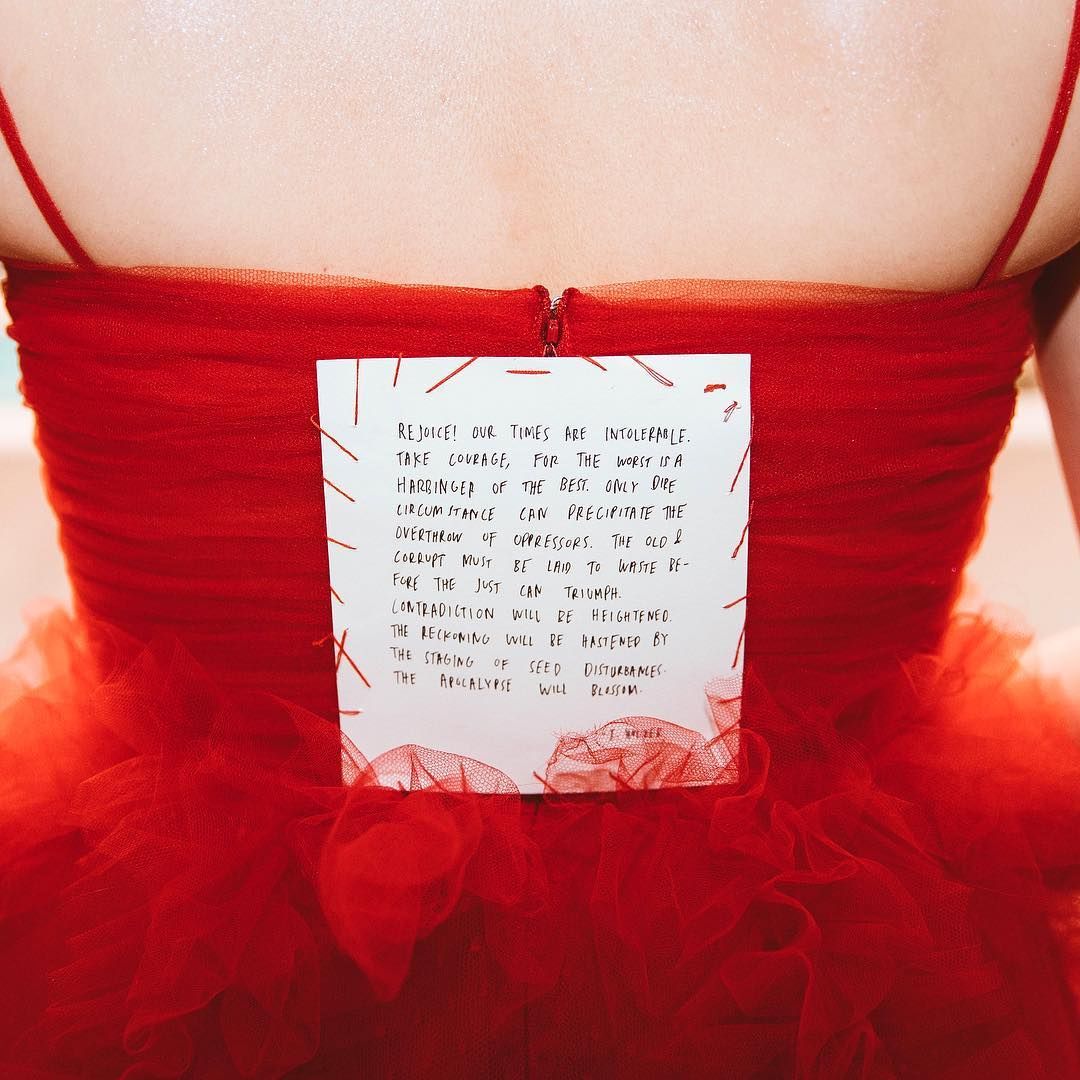 REJOICE! OUR TIMES ARE INTOLERABLE.
TAKE COURAGE, FOR THE WORST IS A
HARBINGER OF THE BEST. ONLY DIRE
CIRCUMSTANCE CAN PRECIPITATE THE
OVERTHROW OF OPPRESSORS. THE OLD &
CORRUPT MUST BE LAID TO WASTE BE-
FORE THE JUST CAN TRIUMPH.
CONTRADICTION WILL BE HEIGHTENED.
THE RECKONING WILL BE HASTENED BY
THE STAGING OF SEED DISTURBANCES.
THE APOCALYPSE WILL BLOSSOM.